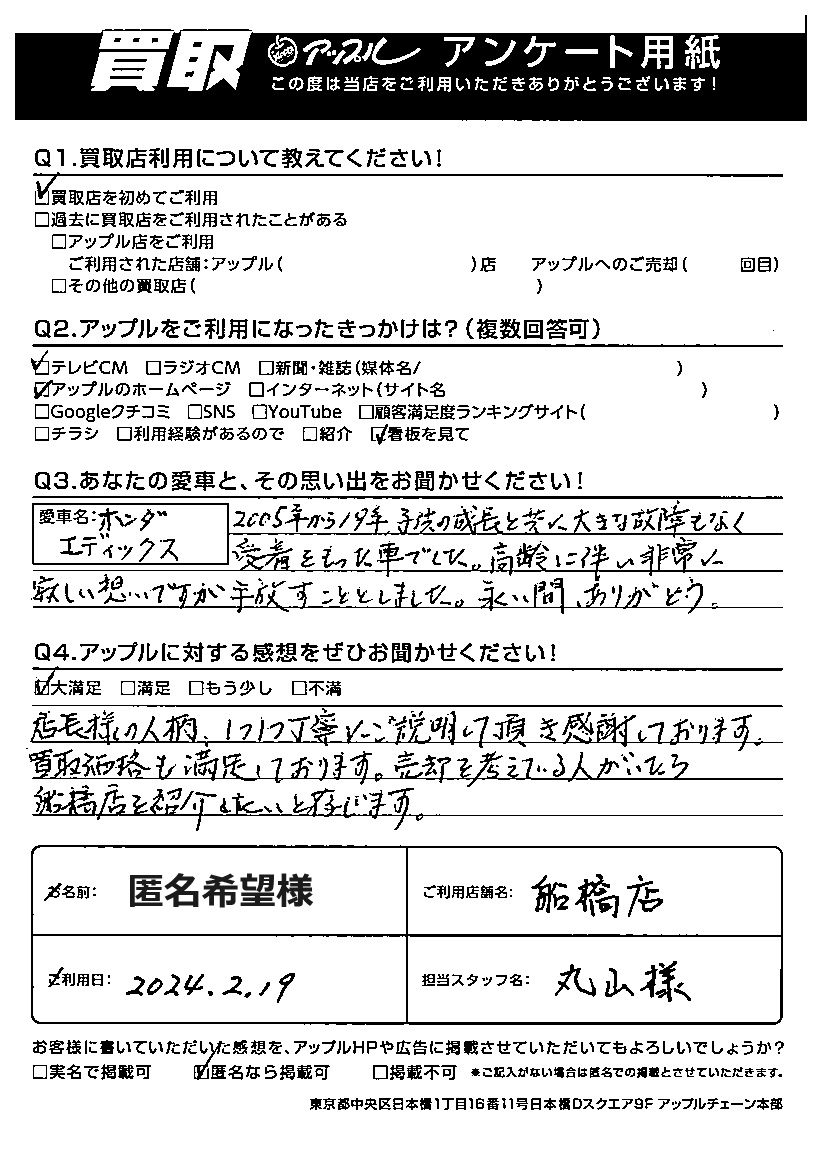 買取 アップル アンケート用紙
この度は当店をご利用いただきありがとうございます!
Q1.買取店利用について教えてください!
☑買取店を初めてご利用
□過去に買取店をご利用されたことがある
□アップル店をご利用
ご利用された店舗:アップル( )店 アップルへのご売却( 回目)
□その他の買取店( )
Q2.アップルをご利用になったきっかけは?(複数回答可)
☑テレビCM □ラジオCM □新聞・雑誌(媒体名/ )
☑アップルのホームページ □インターネット(サイト名 )
□Googleクチコミ □SNS □YouTube □顧客満足度ランキングサイト( )
□チラシ □利用経験があるので □紹介 ☑看板を見て
Q3.あなたの愛車と、その思い出をお聞かせください!
愛車名:ホンダ
エディックス
2005年から19年、子供の成長と共に大きな故障もなく
愛着をもった車でした。高齢に伴い非常に
寂しい想いですが手放すこととしました。永い間、ありがとう。
Q4.アップルに対する感想をぜひお聞かせください!
☑大満足 □満足 □もう少し □不満
店長様の人柄、1つ1つ丁寧にご説明して頂き感謝しております。
買取価格も満足しております。売却を考えている人がいたら
船橋店を紹介したいと存じます。
お名前: 匿名希望様
ご利用店舗名: 船橋店
ご利用日: 2024.2.19
担当スタッフ名: 丸山様
お客様に書いていただいた感想を、アップルHPや広告に掲載させていただいてもよろしいでしょうか?
□実名で掲載可 ☑匿名なら掲載可 □掲載不可 ※ご記入がない場合は匿名での掲載とさせていただきます。
東京都中央区日本橋1丁目16番11号日本橋Dスクエア9F アップルチェーン本部